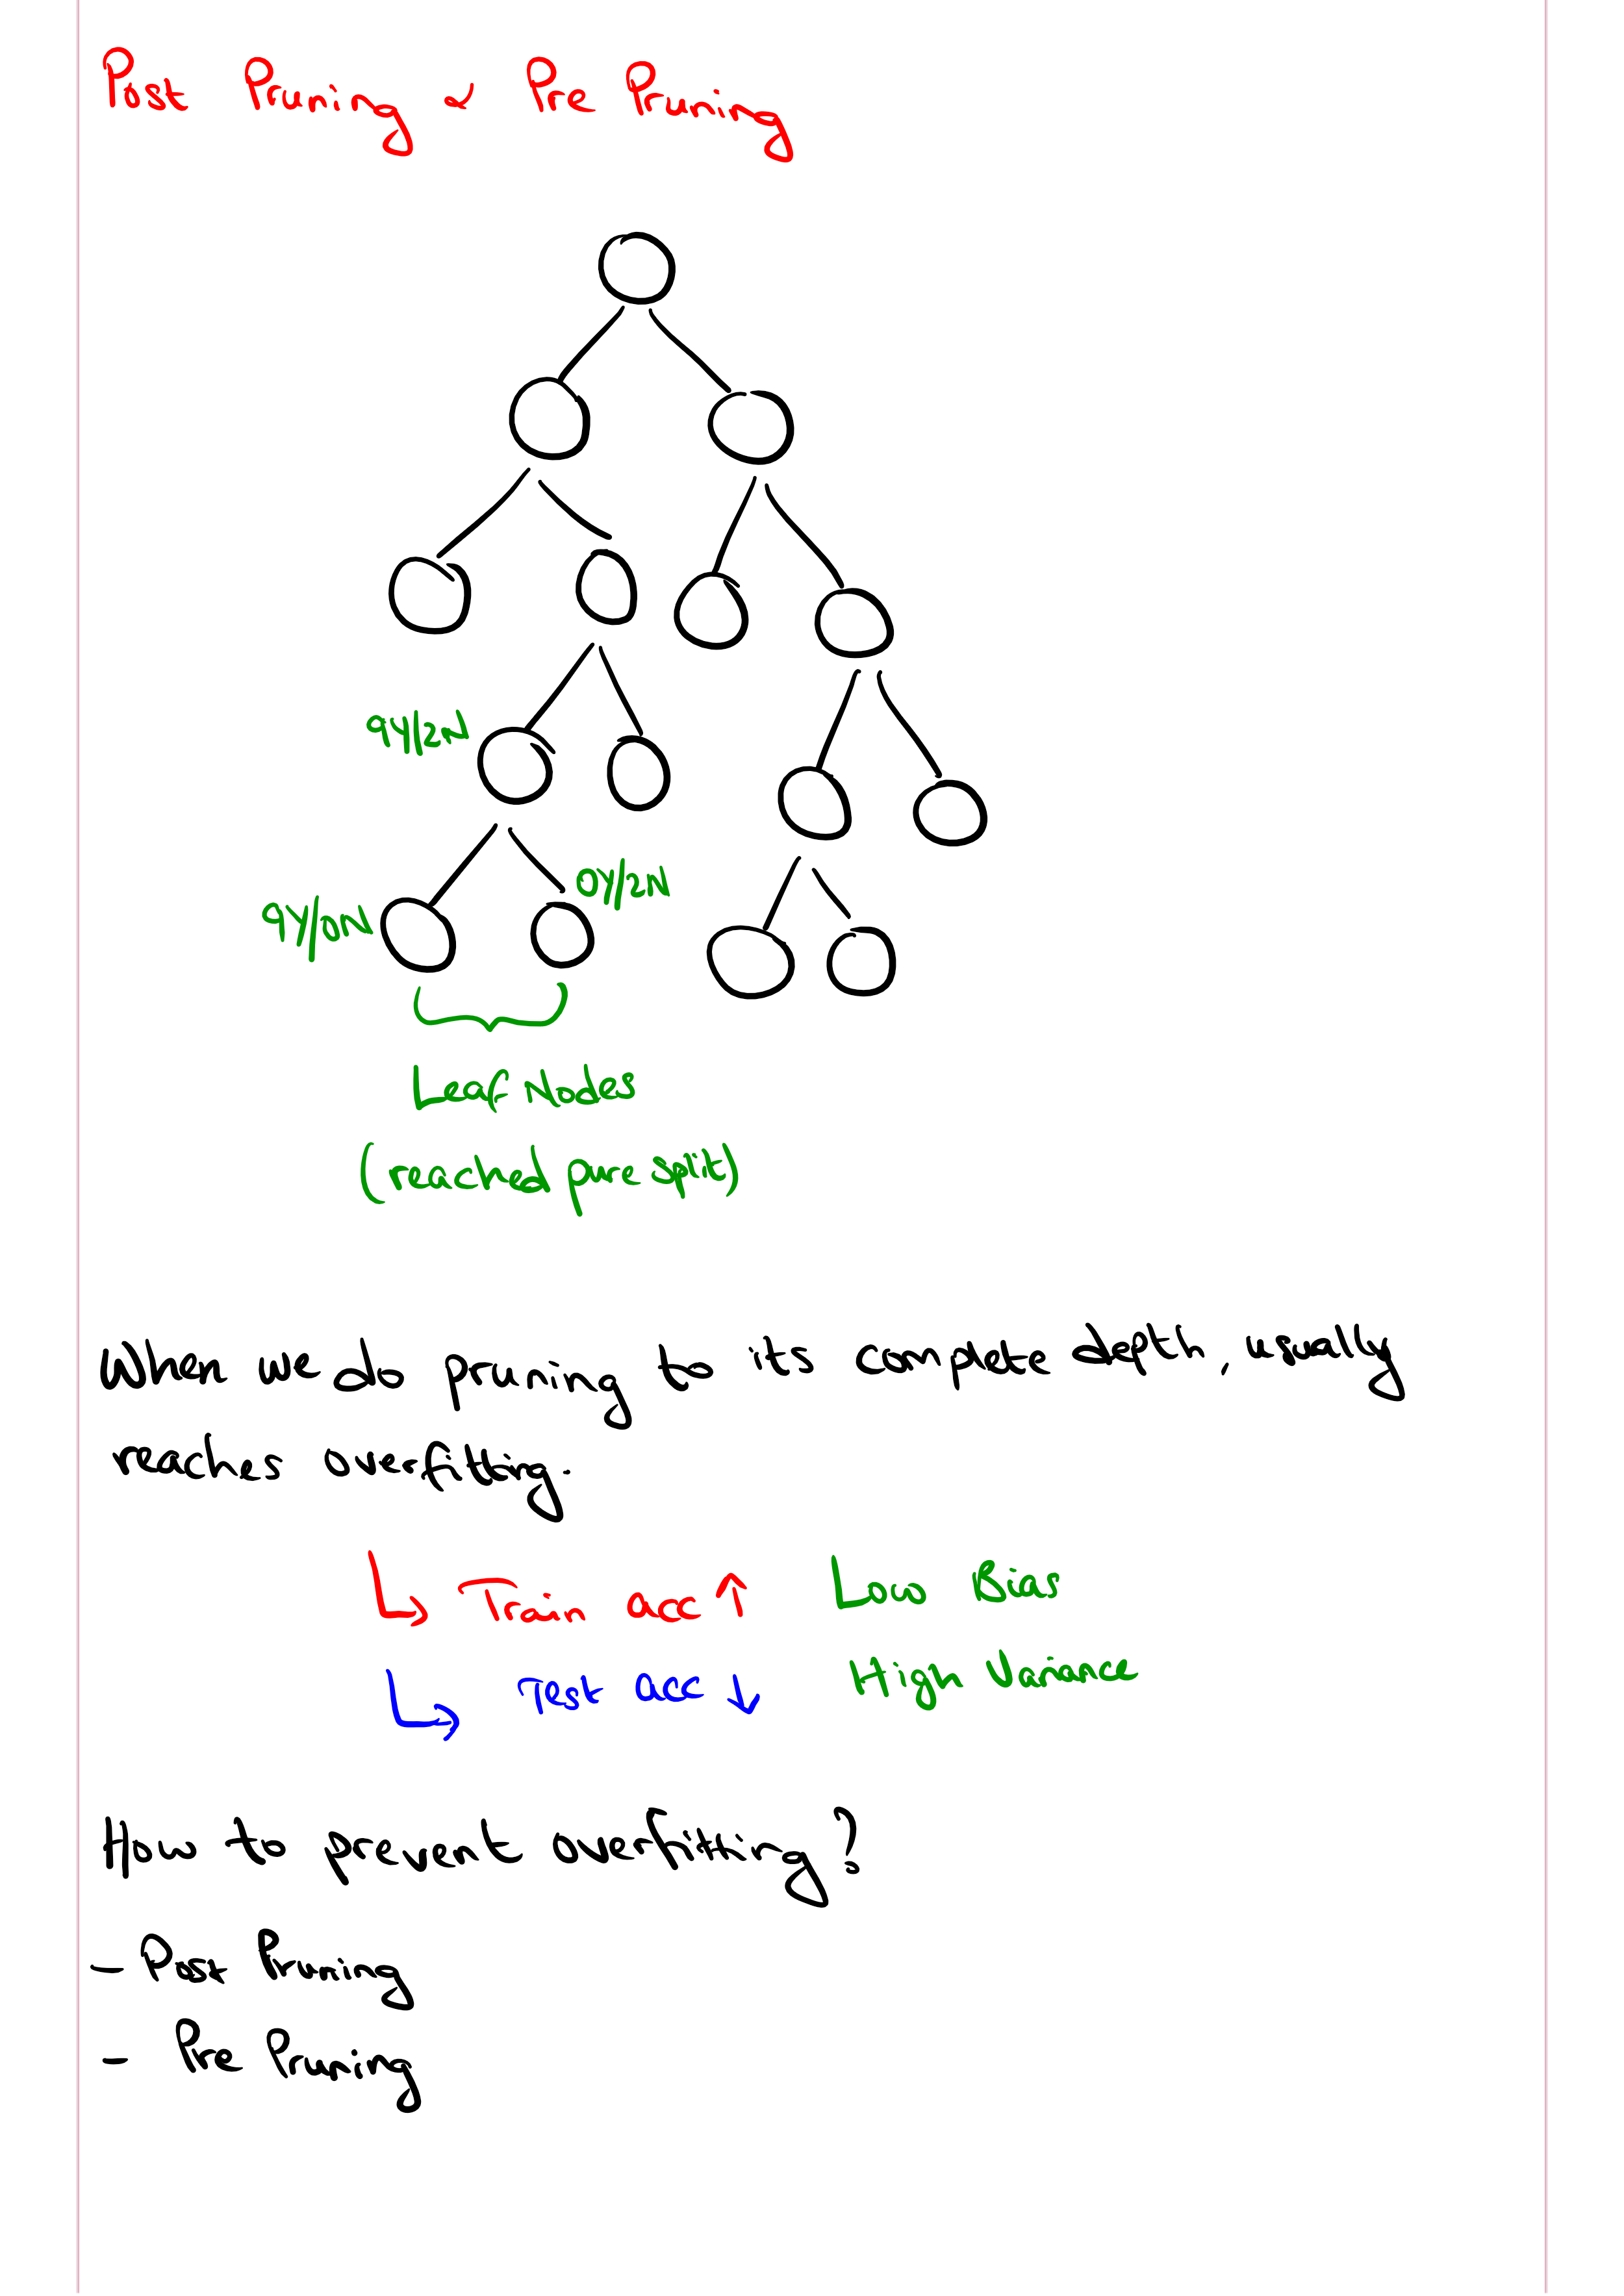 Post Pruning & Pre Pruning
9Y/2N
9Y/0N
0Y/2N
Leaf Nodes
(reached pure split)
When we do pruning to its complete depth, usually
reaches overfitting.
Train acc ↑ Low Bias
Test acc ↓ High Variance
How to prevent overfitting?
- Post Pruning
- Pre Pruning